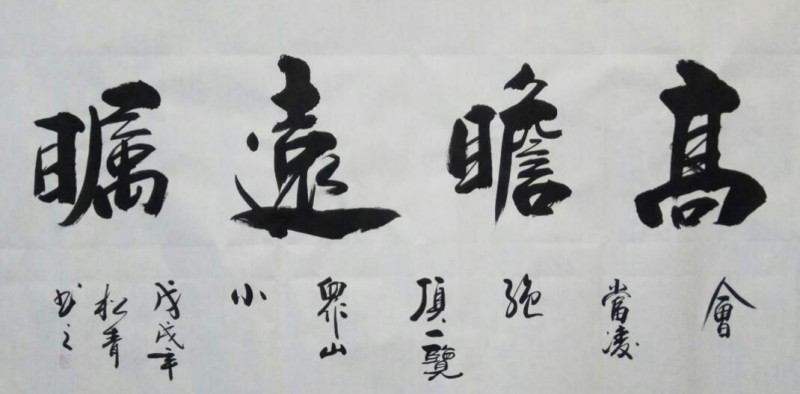 高瞻遠矚
會當凌絶頂一覽眾山小
戊戌年松青书之